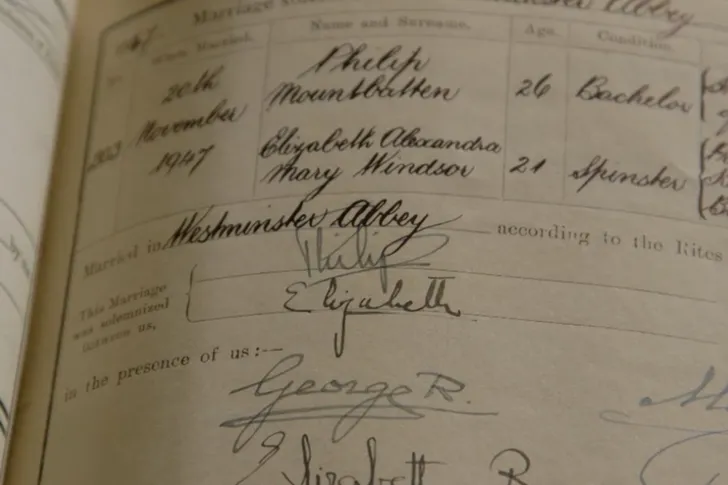 Marriage Abbey
1947. When Married. Name and Surname. Age. Condition.
20th November 1947
Philip
Mountbatten
26 Bachelor
203
Elizabeth Alexandra
Mary Windsor
21 Spinster
Married in Westminster Abbey according to the Rites
Philip
This Marriage
was solemnized
between us,
Elizabeth
in the presence of us:—
George R.
Elizabeth R